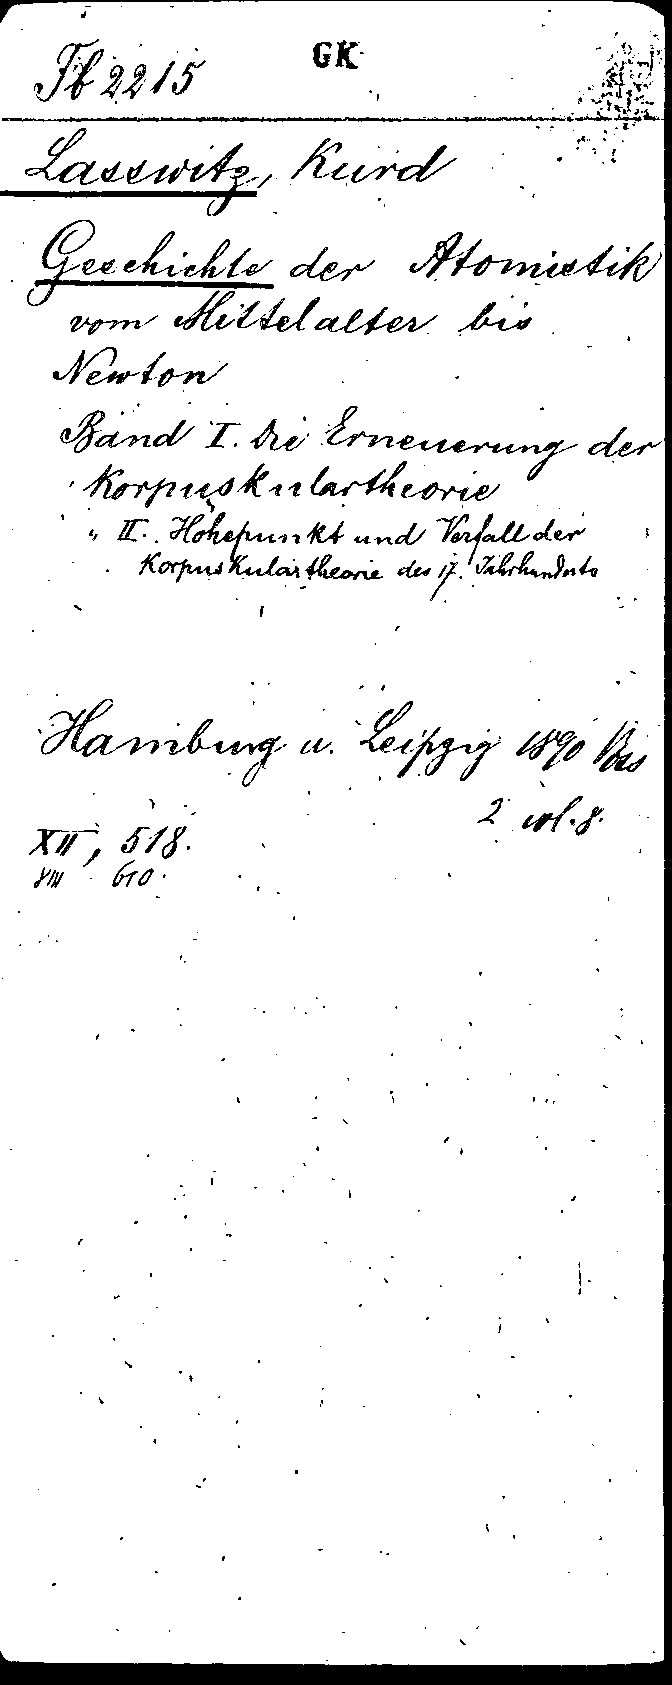 GK
Tb 2215
Lasswitz, Kurd
Geschichte der Atomistik
vom Mittelalter bis
Newton
Band I. Die Erneuerung der
Korpuskulartheorie
„ II. Höhepunkt und Verfall der
Korpuskulartheorie des 17. Jahrhunderts
Hamburg u. Leipzig 1890 Voss
2 vol. 8.
XII, 518.
VIII 610.